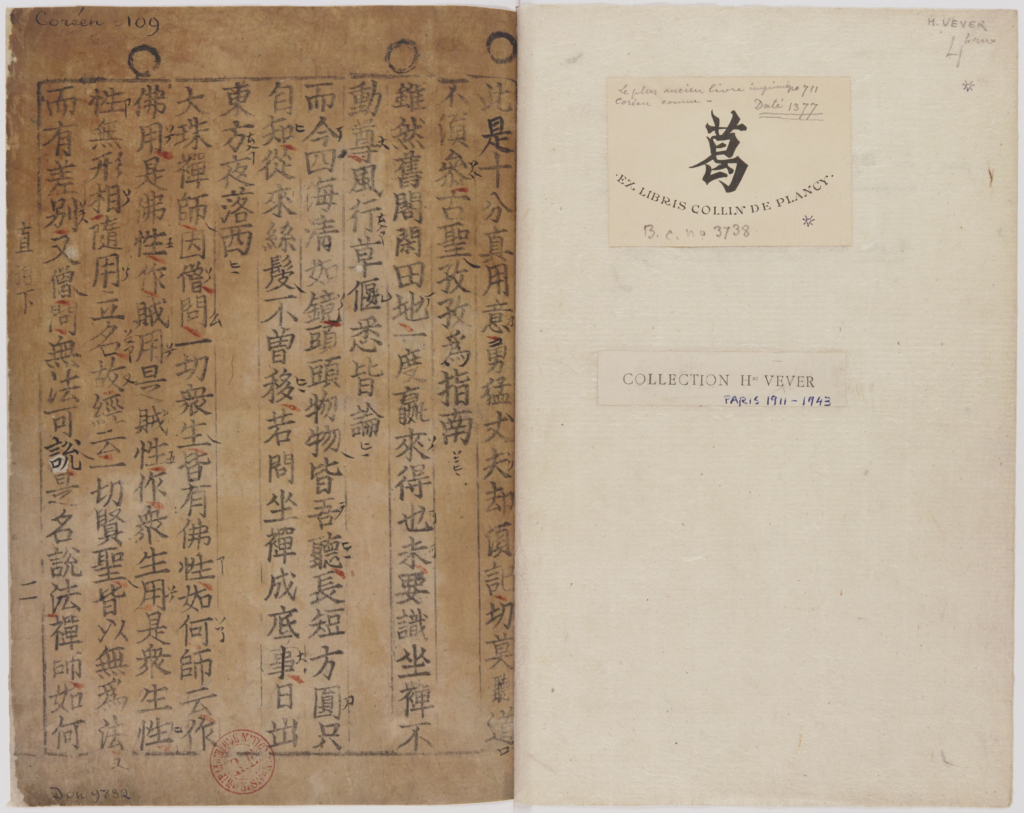 Coréen 109
此是十分真用意勇猛丈夫却須記切莫聽道
不須叅古聖孜孜爲指南
雖然舊閣閑田地一度贏來得也未要識坐禪不
動尊風行草偃悉皆論
而今四海淸如鏡頭頭物物皆吾聽長短方圓只
自知從來絲髮不曾移若問坐禪成底事日出
東方夜落西
大珠禪師因僧問一切衆生皆有佛性如何師云作
佛用是佛性作賊用是賊性作衆生用是衆生性
性無形相隨用立名故經云一切賢聖皆以無爲法
而有差別又僧問無法可說是名說法禪師如何
直 下
二
Don 9832
H. VEVER
Le plus ancien livre imprimé 711
Coréen connu -
Daté 1377
葛
·EX LIBRIS COLLIN DE PLANCY·
B. C. no 3738
COLLECTION Hri VEVER
PARIS 1911-1943